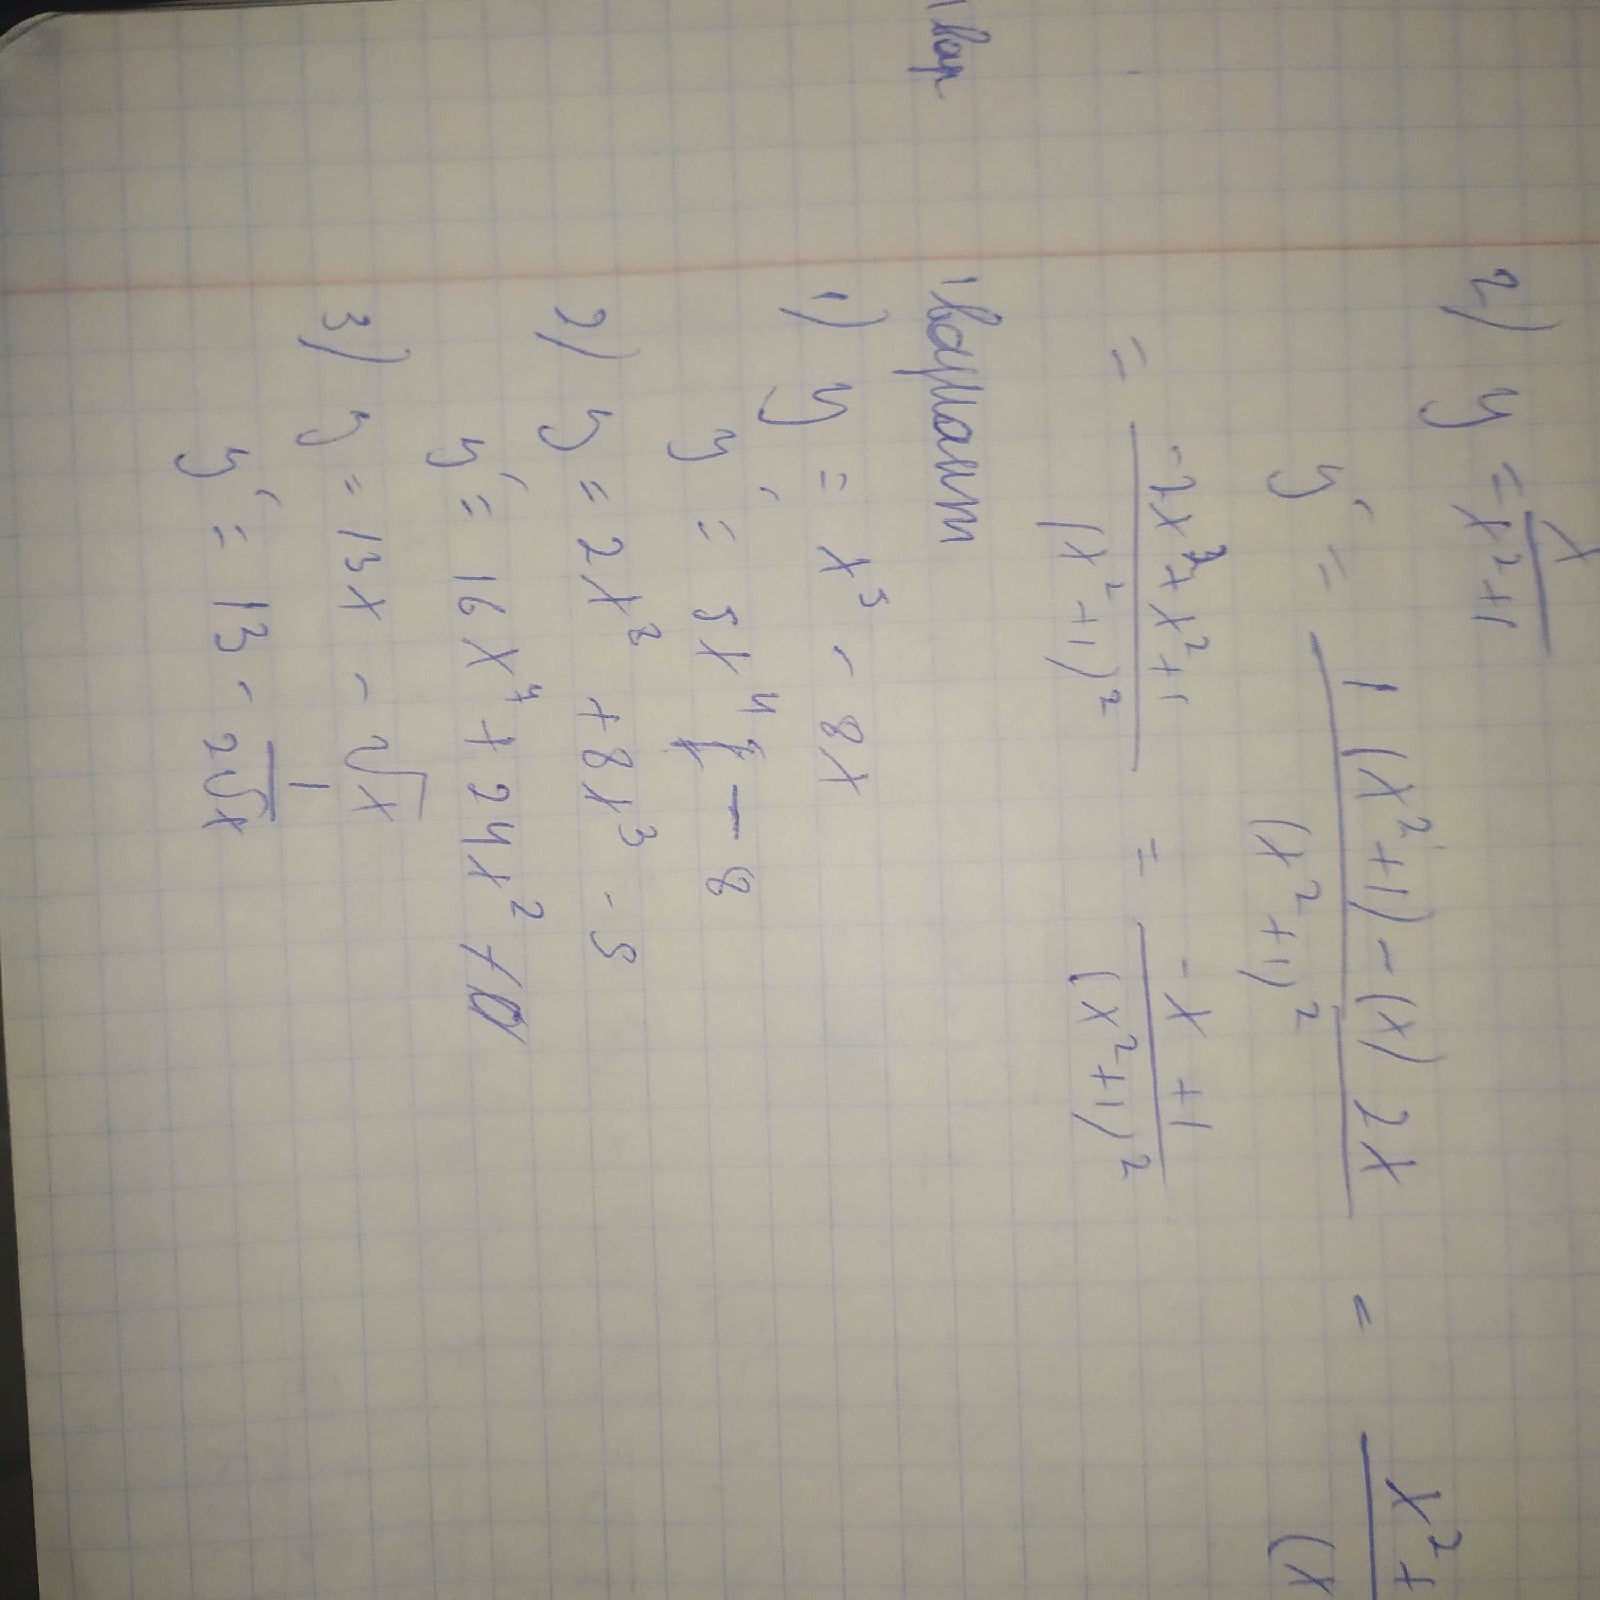 2) y = x/(x²+1)
y' = (1 (x²+1) - (x) 2x)/((x²+1)²) = (x²+)/((x)
= (-2x²+x²+1)/((x²+1)²) = (-x +1)/((x²+1)²)
1 вар 1 вариант
1) y = x⁵ - 8x
y' = 5x⁴ - 8
2) y = 2x⁸ + 8x³ - 5
y' = 16x⁷ + 24x²
3) y = 13x - √x
y' = 13 - 1/(2√x)